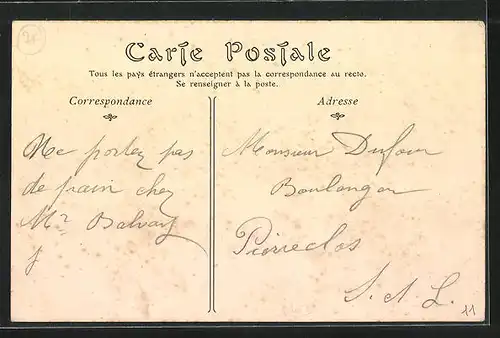 25
Carte Postale
Tous les pays étrangers n'acceptent pas la correspondance au recto.
Se renseigner à la poste.
Correspondance
Adresse
Ne portez pas
de pain chez
Mr
Monsieur Dufour
Boulanger
Pierreclos
S. et L.
11